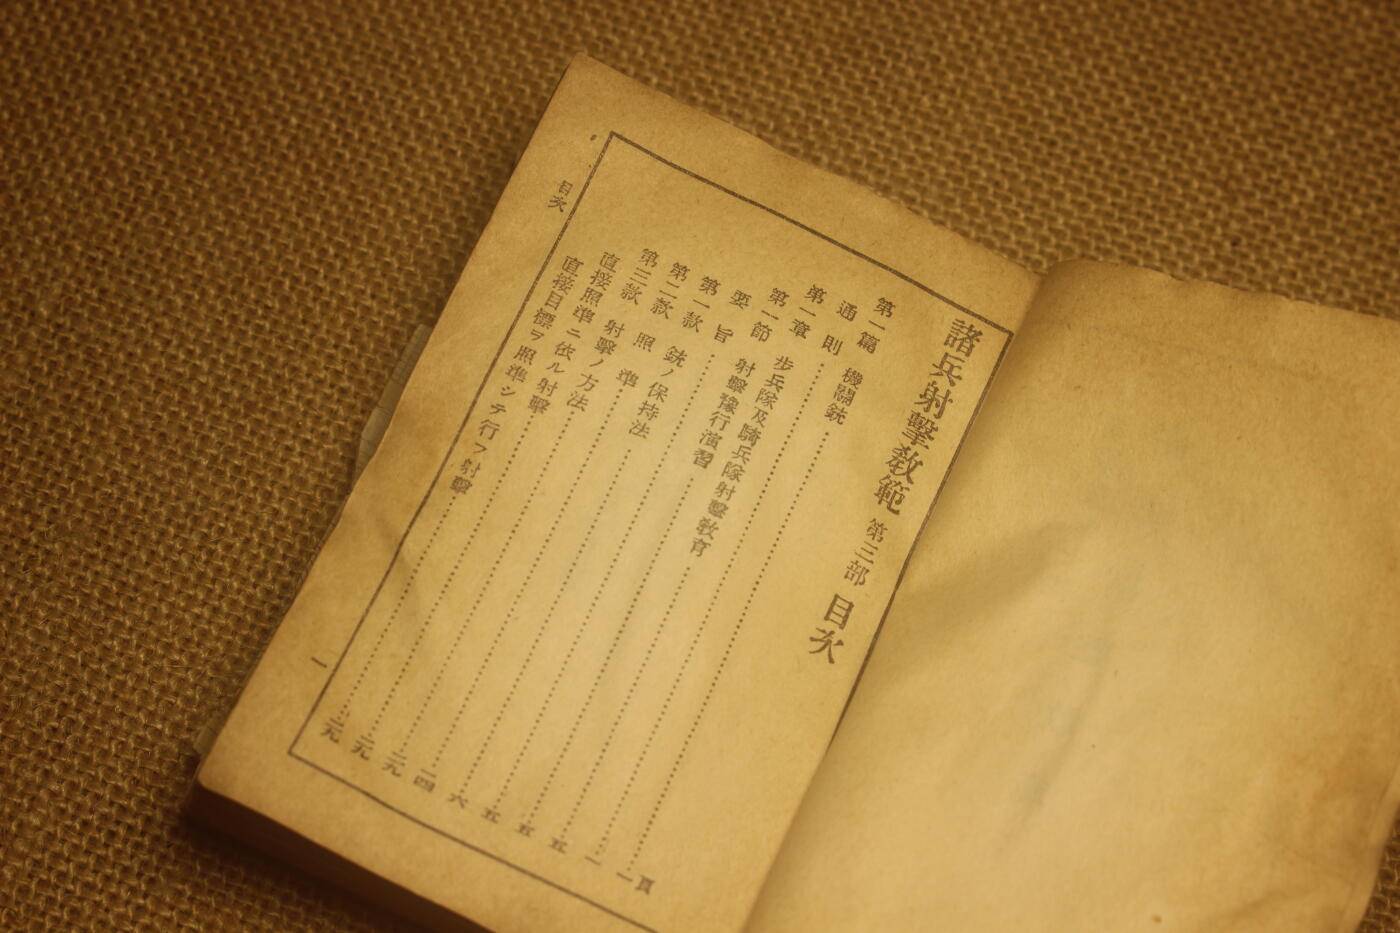 諸兵射擊教範 第三部 目次
第一篇 機關銃 一頁
通則 一
第一章 步兵隊及騎兵隊射擊敎育 五
第一節 射擊豫行演習 五
要旨 五
第一款 銃ノ保持法 六
第二款 照準 一四
第三款 射擊ノ方法 二九
直接照準ニ依ル射擊 二九
直接目標ヲ照準シテ行フ射擊 二九
目次
一